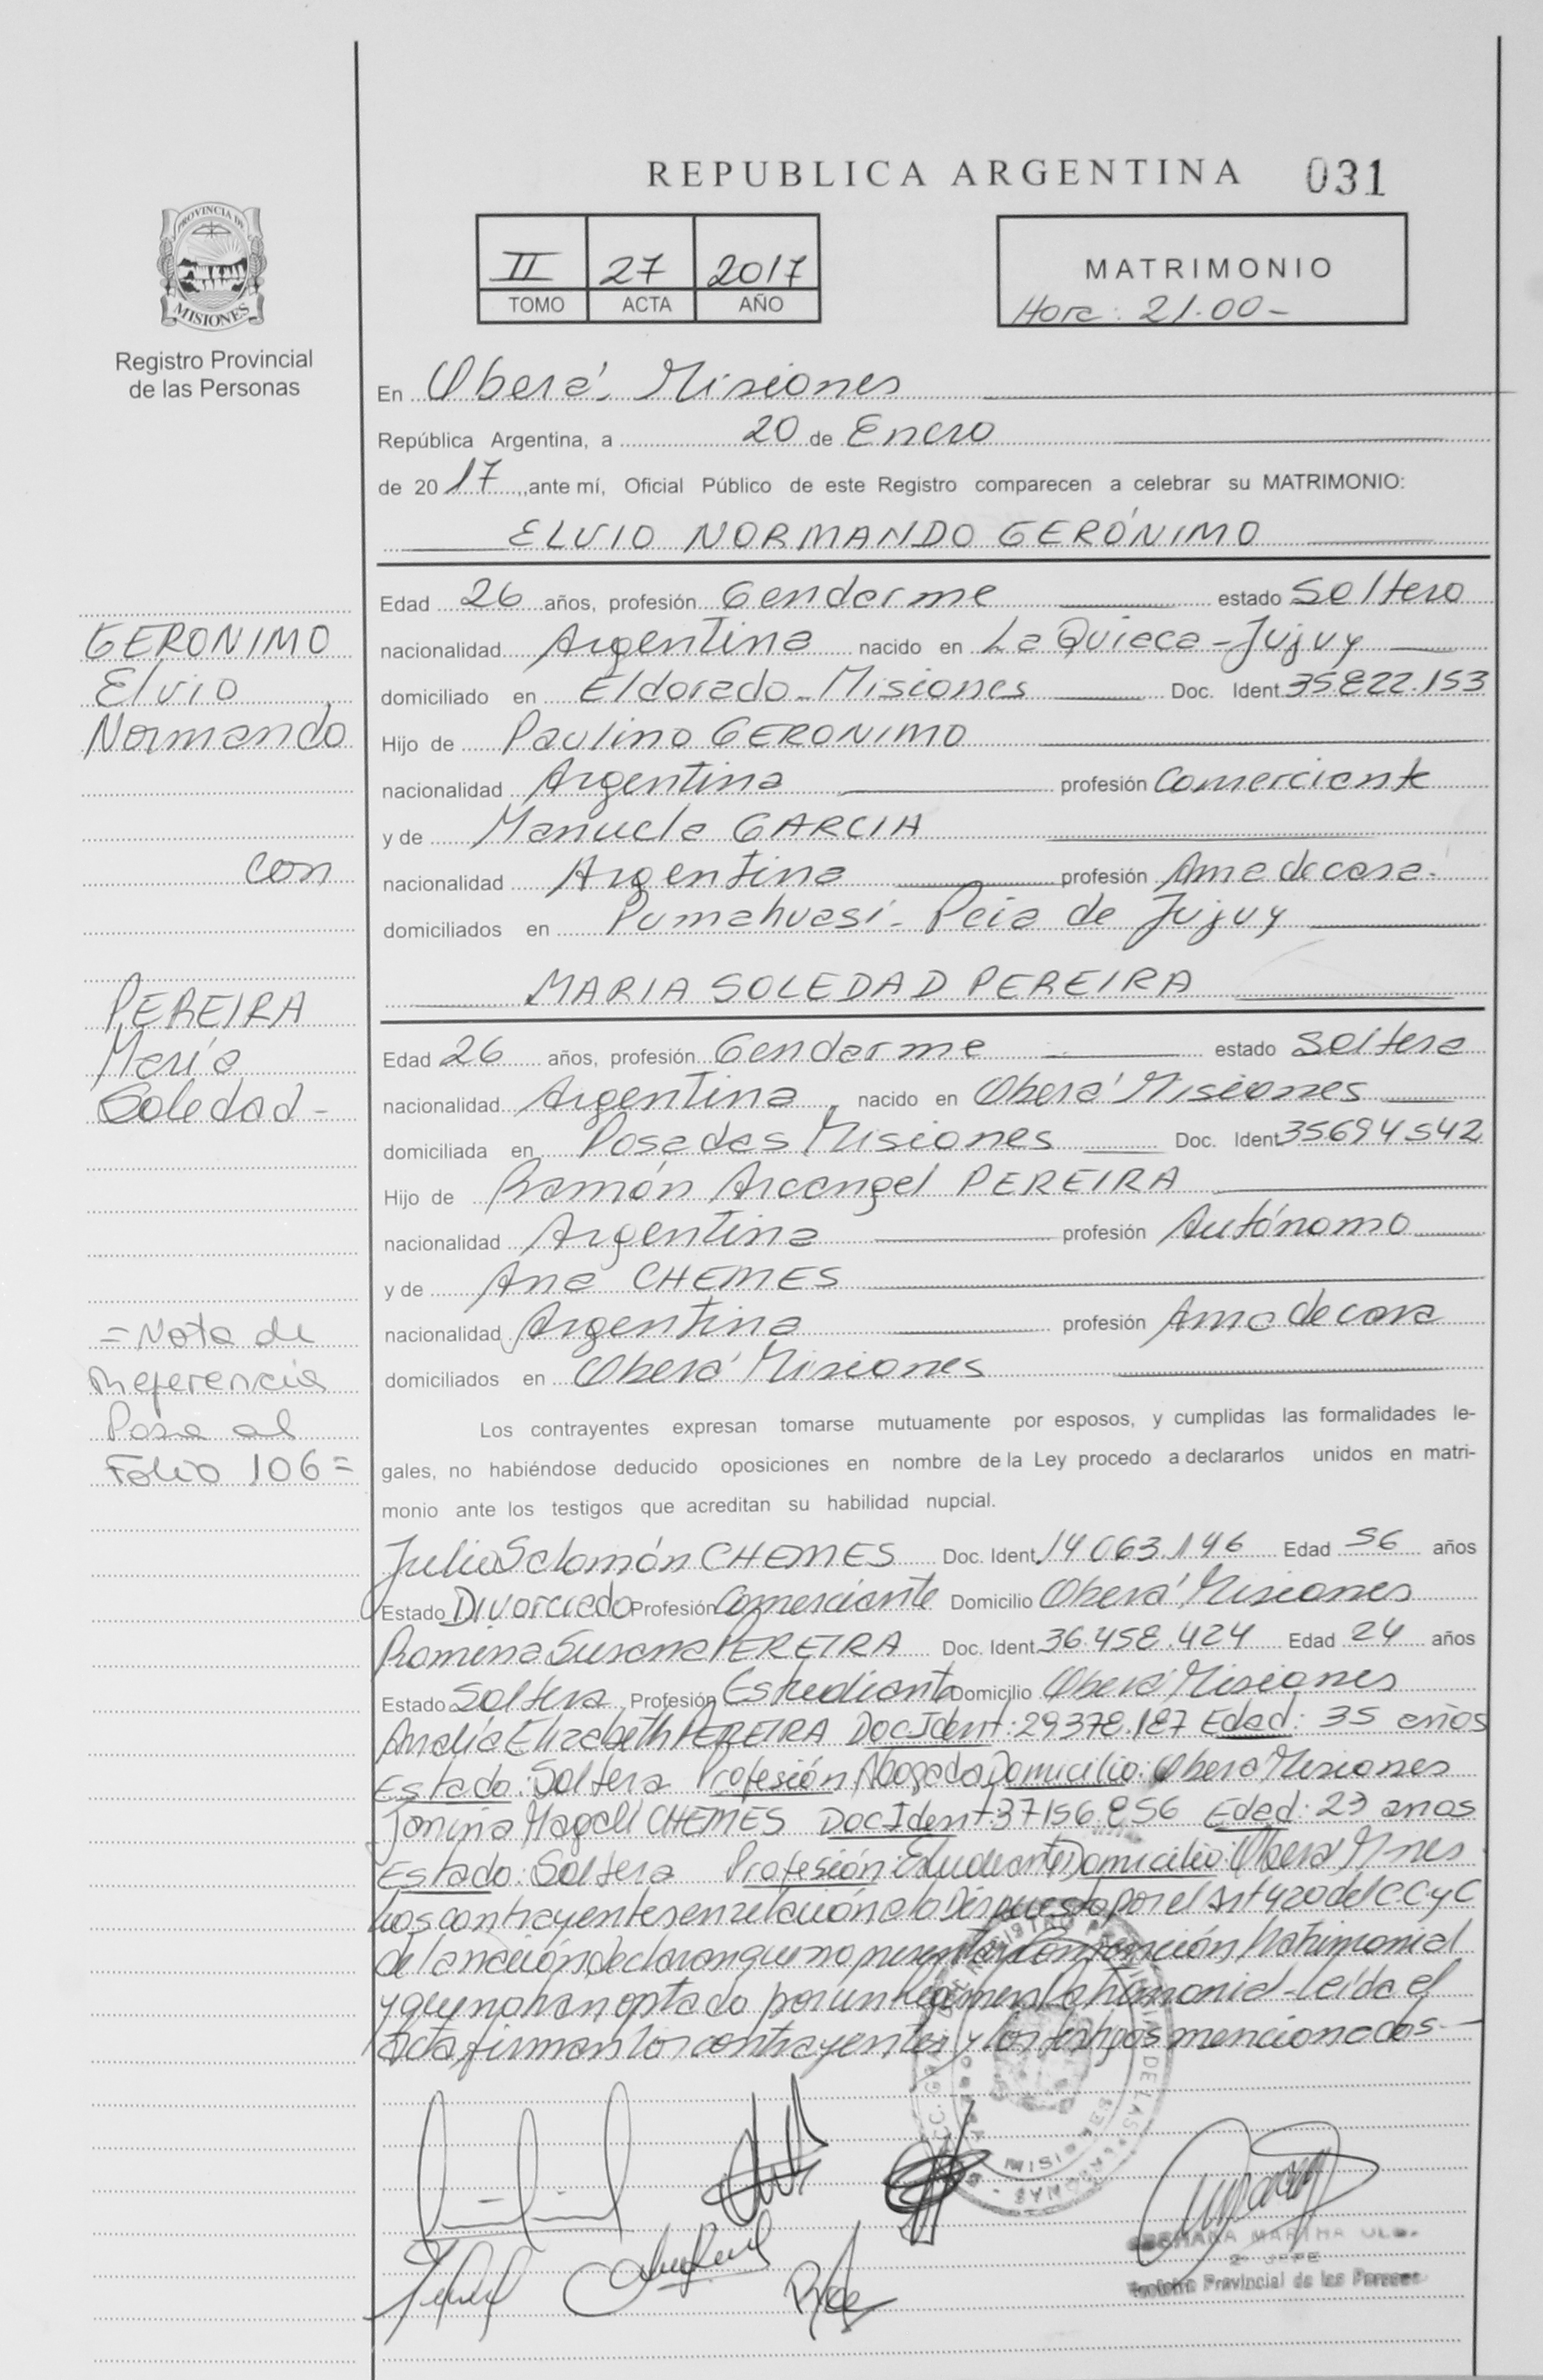 REPUBLICA ARGENTINA 031
II 27 2017
TOMO ACTA AÑO
MATRIMONIO
Hora: 21.00-
PROVINCIA DE
MISIONES
Registro Provincial
de las Personas
En Oberá. Misiones
República Argentina, a 20 de Enero
de 2017, ante mí, Oficial Público de este Registro comparecen a celebrar su MATRIMONIO:
ELVIO NORMANDO GERÓNIMO
Edad 26 años, profesión Gendarme estado Soltero
nacionalidad Argentina nacido en La Quieca-Jujuy
domiciliado en Eldorado-Misiones Doc. Ident. 35822.153
Hijo de Paulino GERONIMO
nacionalidad Argentina profesión Comerciante
y de Manuela GARCIA
nacionalidad Argentina profesión Ama de casa.
domiciliados en Pumahuasi- Pcia de Jujuy
MARIA SOLEDAD PEREIRA
Edad 26 años, profesión Gendarme estado Soltera
nacionalidad Argentina, nacido en Oberá Misiones
domiciliada en Posadas Misiones Doc. Ident 35694542
Hijo de Ramón Arcangel PEREIRA
nacionalidad Argentina profesión Autónomo
y de Ana CHEMES
nacionalidad Argentina profesión Ama de casa
domiciliados en Oberá Misiones
GERONIMO
Elvio
Normando
con
PEREIRA
María
Soledad-
=Nota de
Referencia
Pasa al
Folio 106=
Los contrayentes expresan tomarse mutuamente por esposos, y cumplidas las formalidades le-
gales, no habiéndose deducido oposiciones en nombre de la Ley procedo a declararlos unidos en matri-
monio ante los testigos que acreditan su habilidad nupcial.
Julio Salomón CHEMES Doc. Ident. 14063.146 Edad 56 años
Estado Divorciado Profesión Comerciante Domicilio Oberá Misiones
Romina Susana PEREIRA Doc. Ident. 36.458.424 Edad 24 años
Estado Soltera Profesión Estudiante Domicilio Oberá Misiones
Analía Elizabeth PEREIRA Doc Ident: 29378.187 Edad: 35 años
Estado: Soltera Profesión Abogada Domicilio: Oberá Misiones
Magalí CHEMES Doc Ident: 37156.856 Edad: 23 anos
Estado: Soltera Profesión: Estudiante Domicilio: Oberá Mnes
Los contrayentes en relación a lo Dispuesto por el Art 420 del C.C.y C
de la nación, declaran que no presentan Convención Matrimonial
y que no han optado por un Régimen Patrimonial-leída el
acta, firman los contrayentes y los testigos mencionados-
MARTHA
2° JEFE
Registro Provincial de las Personas